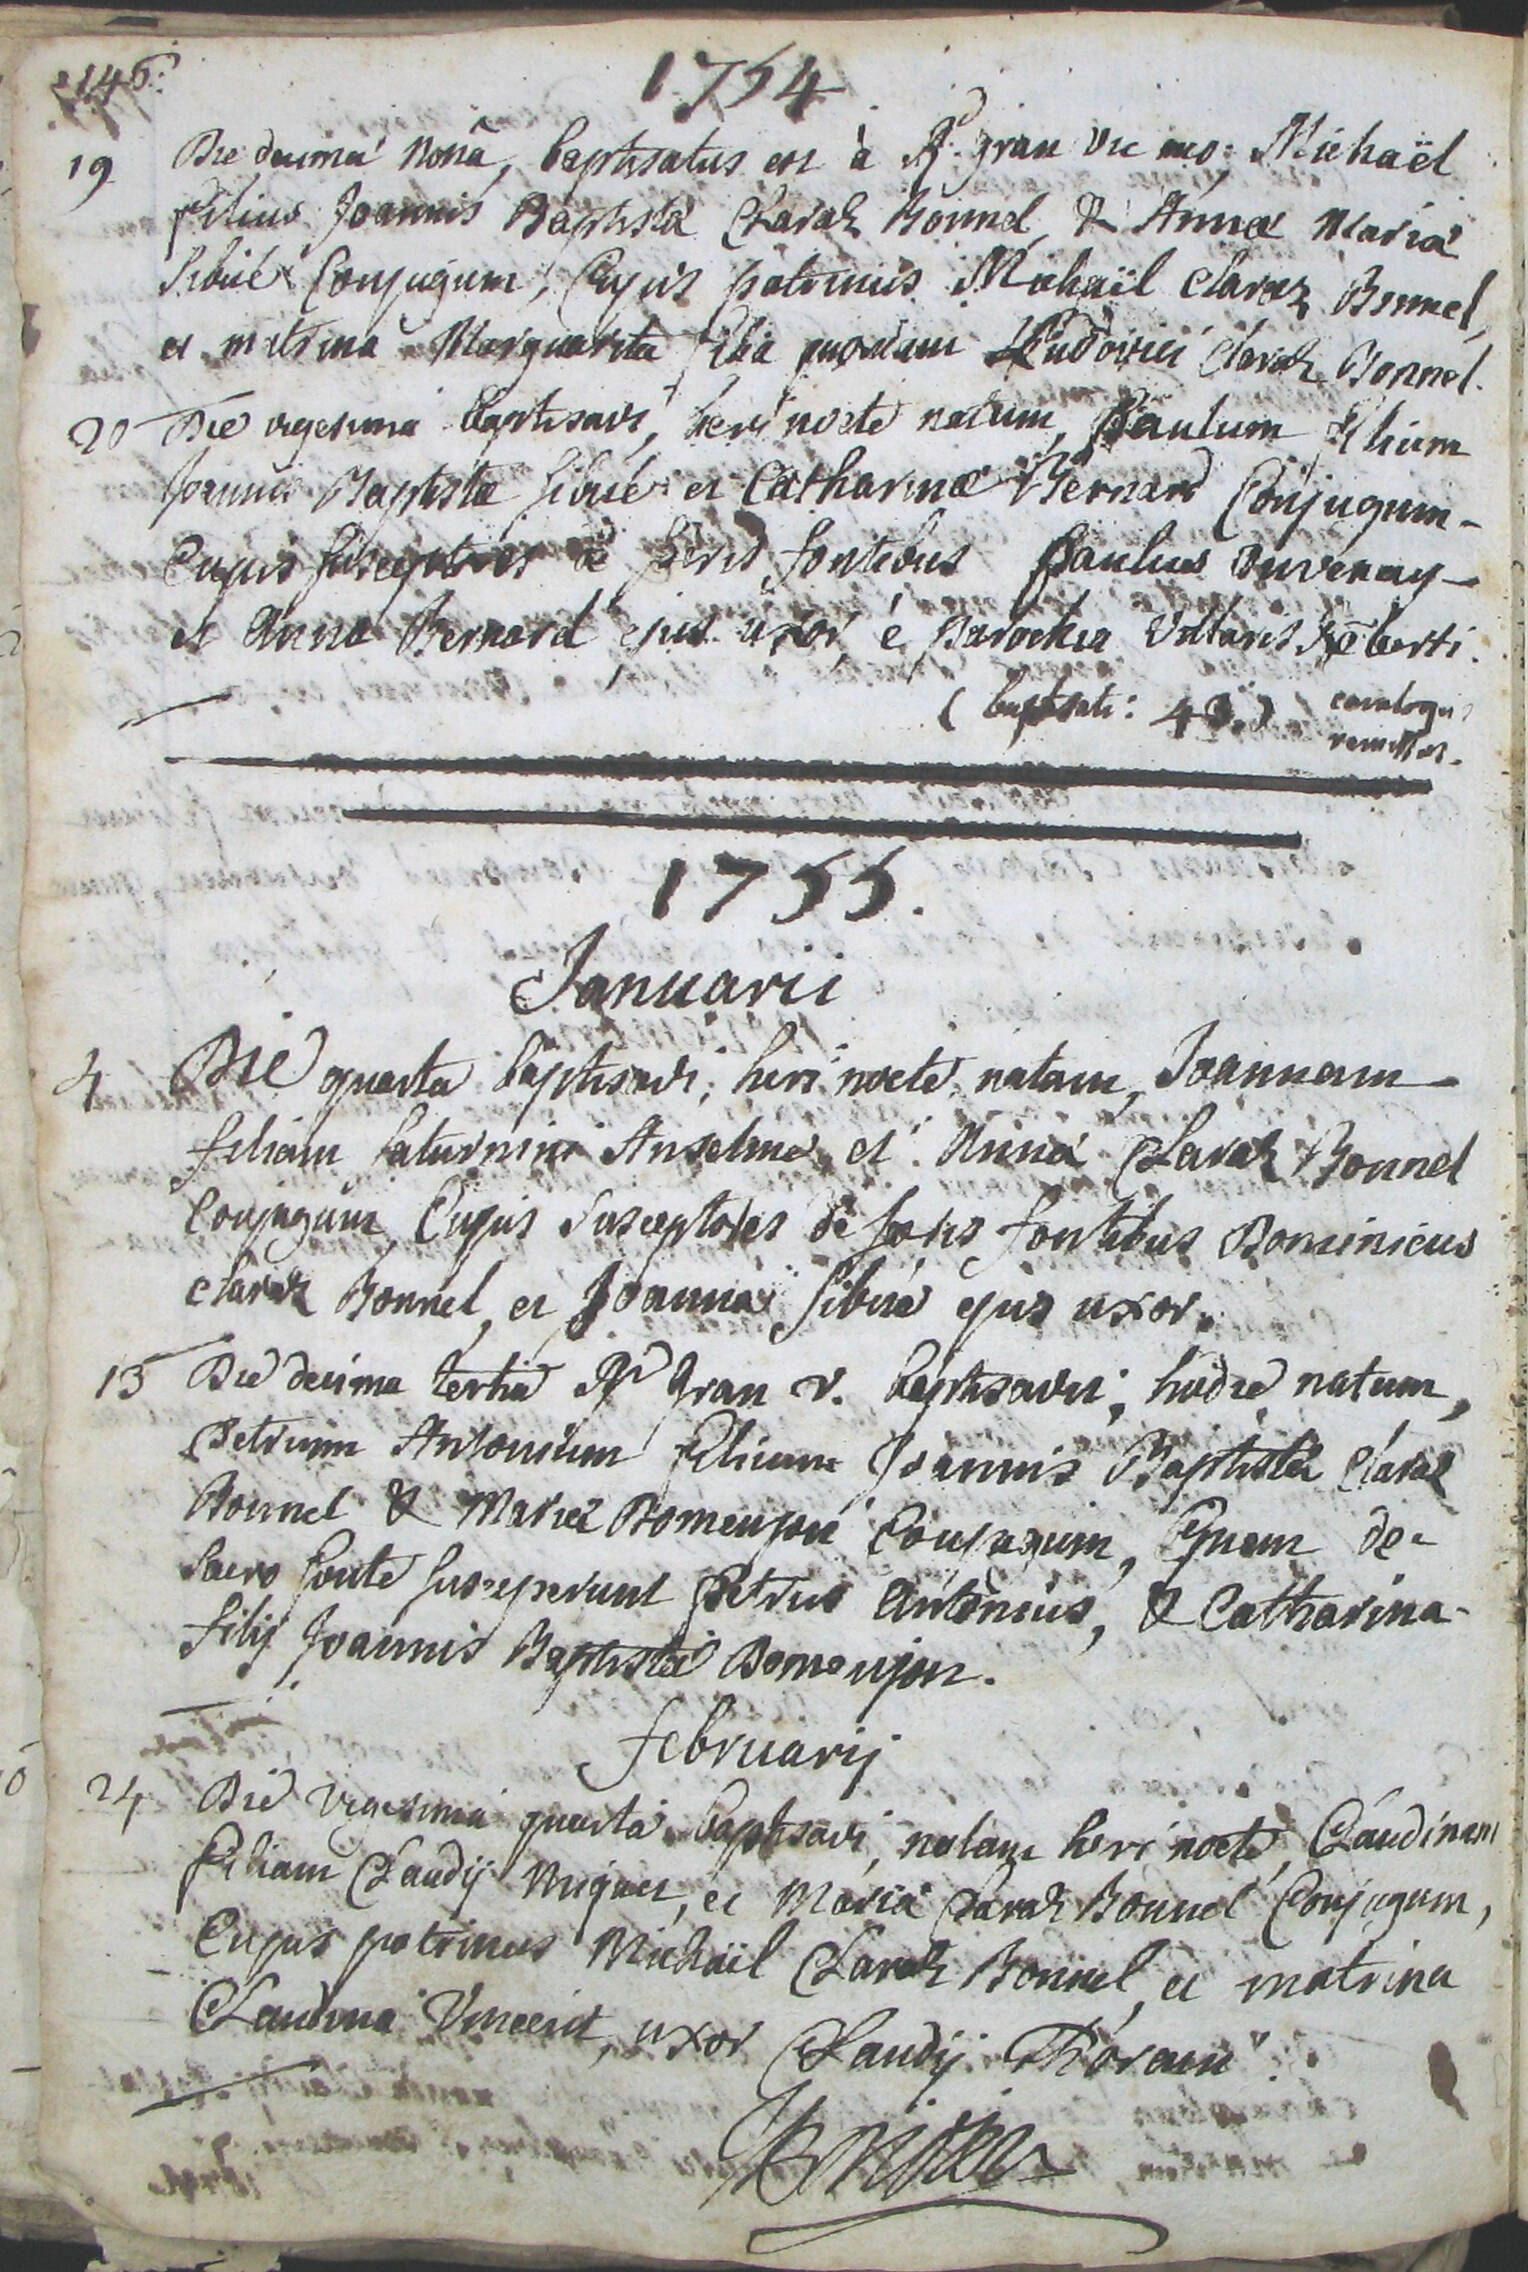 146.
1754
19 Die decima nona, baptisatus est à Rd. gran vic meo. Michaël
filius Joannis Baptista Claraz Bonnel, & Anna Maria
Sibué Conjugum, Cujus patrinus Michaïl Claraz Bonnel,
et matrina Margarita filia quondam Ludovici Claraz Bonnel.
20 Die vigesima baptisavi, heri nocte natum, Paulum filium
Joannis Baptista Sibué et Catharina Bernard Conjugum-
Cujus susceptores de sacris fontibus Paulus Duvernay-
et Anna Bernard ejus uxor, è Parochia Villaris
(baptisati: 43.)
1755.
Januarii
4 Die quarta baptisavi, heri nocte natam, Joannam-
filiam Saturnini Anselme, et Anna Claraz Bonnel
Conjugum, Cujus Susceptores de sacris fontibus Dominicus
Claraz Bonnel, et Joanna Sibué ejus uxor.
13 Die decima tertia Rd Gran v. baptisavit, hodie natum,
Petrum Antonium filium Joannis Baptista Claraz
Bonnel & Maria Domenjon Conjugum, Quem de-
Sacro fonte susceperunt Petrus Antonius, & Catharina-
filij Joannis Baptista Domenjon.
februarij
24 Die vigesima quarta baptisavi, natam heri nocte, Claudinam
filiam Claudij Miquet, et Maria Claraz Bonnel Conjugum,
Cujus patrinus Michaïl Claraz Bonnel, et matrina
Claudina Vincent, uxor Claudij